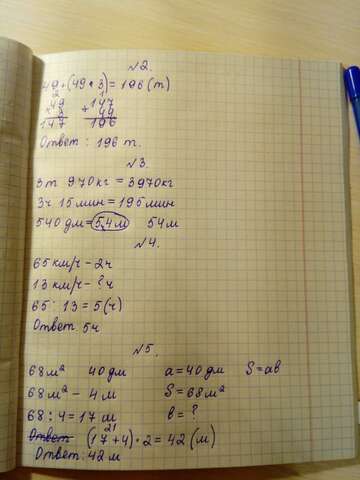 №2.
49 + (49 • 3) = 196 (т)
2 1
49 147
× 3 + 49
147 196
Ответ: 196 т.
№3.
3т 970кг = 3970кг
3ч 15мин = 195мин
540 дм = 5,4 м 54м
№4.
65 км/ч – 2ч
13 км/ч – ? ч
65 : 13 = 5 (ч)
Ответ: 5ч
№5.
68м² 40 дм a = 40 дм S = ab
68м² – 4м S = 68м²
68 : 4 = 17 м b = ?
21
Ответ (17 + 4) • 2 = 42 (м)
Ответ: 42м